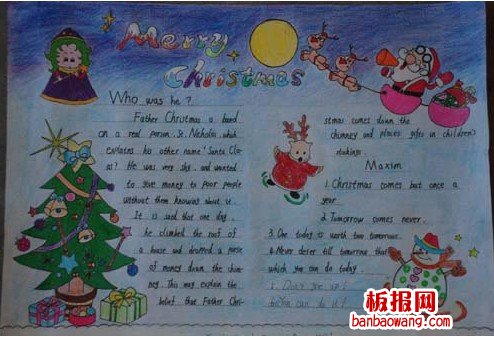 Merry
Christmas
Who was he?
Father Christmas is based
on a real person. St. Nicholas, which
explains his other name 'Santa Cla-
us'? He was very shy and wanted
to give money to poor people
without them knowing about it.
It is said that one day,
he climbed the roof of
a house and dropped a purse
of money down the chim-
ney. This may explain the
belief that Father Chri-
stmas comes down the
chimney and places gifts in children's
stockings.
Maxim
1 Christmas comes but once a
year.
2. Tomorrow comes never.
3. One today is worth two tomorrows.
4. Never defer till tomorrow that
which you can do today.
板报网
banbaowang.com